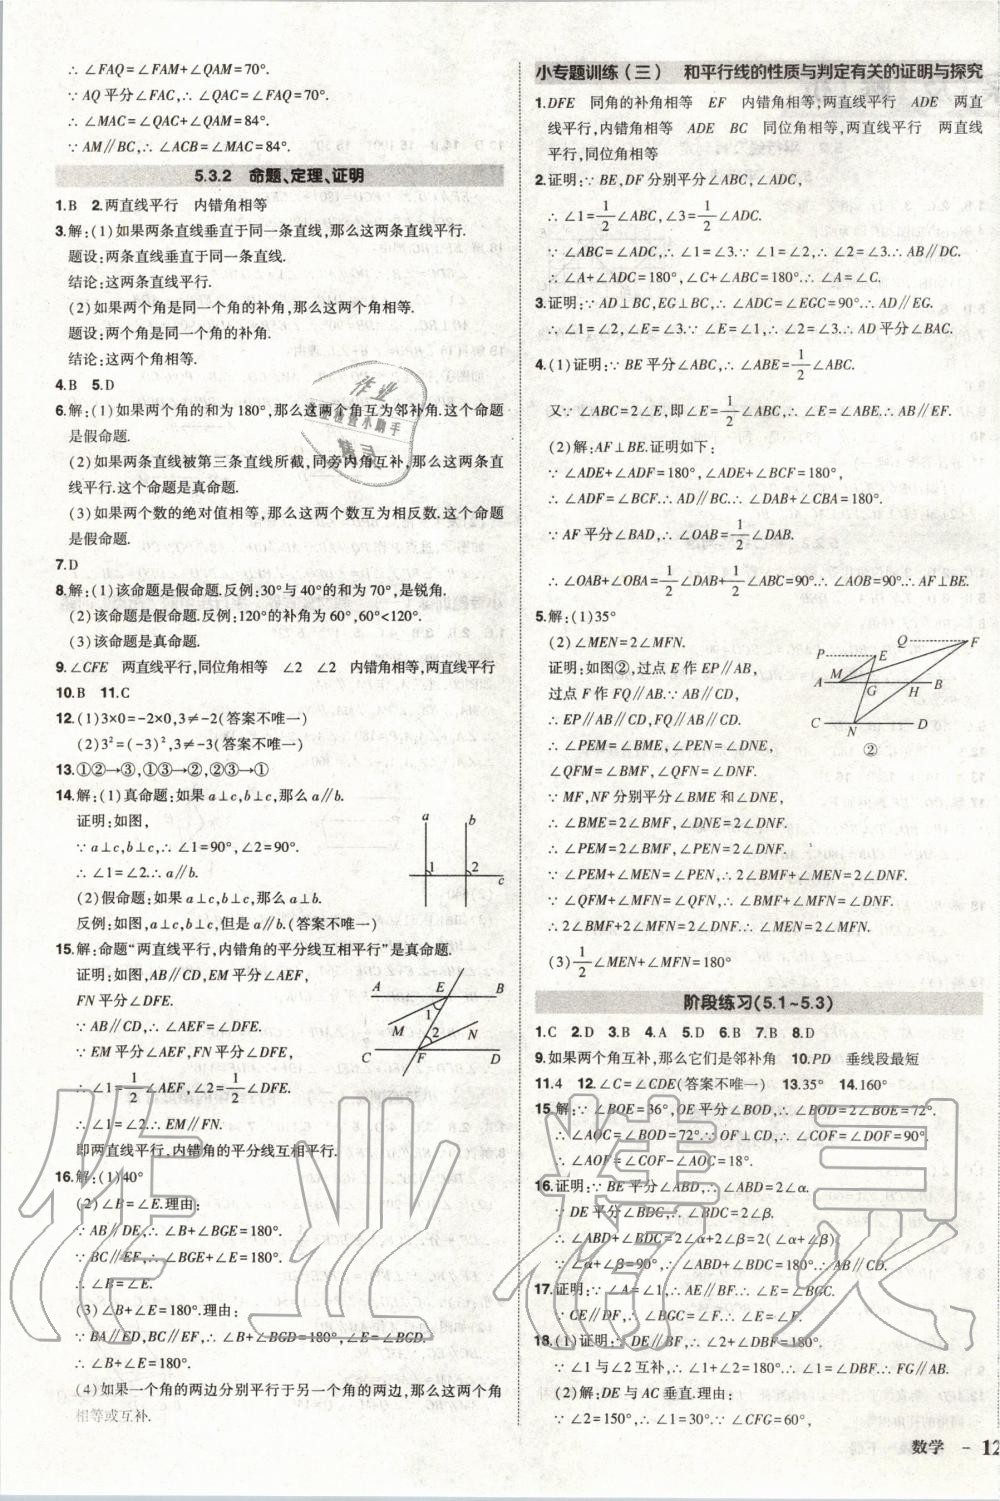 ∴ ∠FAQ=∠FAM+∠QAM=70°.
∵ AQ 平分∠FAC,∴ ∠QAC=∠FAQ=70°.
∴ ∠MAC=∠QAC+∠QAM=84°.
∵ AM∥BC,∴ ∠ACB=∠MAC=84°.
5.3.2 命题、定理、证明
1.B 2.两直线平行 内错角相等
3.解:(1)如果两条直线垂直于同一条直线,那么这两条直线平行.
题设:两条直线垂直于同一条直线.
结论:这两条直线平行.
(2)如果两个角是同一个角的补角,那么这两个角相等.
题设:两个角是同一个角的补角.
结论:这两个角相等.
4.B 5.D
6.解:(1)如果两个角的和为180°,那么这两个角互为邻补角.这个命题
是假命题.
(2)如果两条直线被第三条直线所截,同旁内角互补,那么这两条直
线平行.这个命题是真命题.
(3)如果两个数的绝对值相等,那么这两个数互为相反数.这个命题
是假命题.
7.D
8.解:(1)该命题是假命题.反例:30°与40°的和为70°,是锐角.
(2)该命题是假命题.反例:120°的补角为60°,60°<120°.
(3)该命题是真命题.
9.∠CFE 两直线平行,同位角相等 ∠2 ∠2 内错角相等,两直线平行
10.B 11.C
12.(1)3×0=-2×0,3≠-2(答案不唯一)
(2)3²=(-3)²,3≠-3(答案不唯一)
13.①②→③,①③→②,②③→①
14.解:(1)真命题:如果a⊥c,b⊥c,那么a∥b.
证明:如图,
∵ a⊥c,b⊥c,∴ ∠1=90°,∠2=90°.
∴ ∠1=∠2.∴ a∥b.
(2)假命题:如果a⊥c,b⊥c,那么a⊥b.
反例:如图,a⊥c,b⊥c,但是a∥b.(答案不唯一)
a b
1 2
c
15.解:命题“两直线平行,内错角的平分线互相平行”是真命题.
证明:如图,AB∥CD,EM平分∠AEF,
FN平分∠DFE.
∵ AB∥CD,∴ ∠AEF=∠DFE.
∵ EM平分∠AEF,FN平分∠DFE,
∴ ∠1=1/2∠AEF,∠2=1/2∠DFE.
∴ ∠1=∠2.∴ EM∥FN.
即两直线平行,内错角的平分线互相平行.
A E B
1
M 2 N
C F D
16.解:(1)40°
(2)∠B=∠E.理由:
∵ AB∥DE,∴ ∠B+∠BGE=180°.
∵ BC∥EF,∴ ∠BGE+∠E=180°.
∴ ∠B=∠E.
(3)∠B+∠E=180°.理由:
∵ BA∥ED,BC∥EF,∴ ∠B+∠BGD=180°,∠E=∠BGD.
∴ ∠B+∠E=180°.
(4)如果一个角的两边分别平行于另一个角的两边,那么这两个角
相等或互补.
小专题训练(三) 和平行线的性质与判定有关的证明与探究
1.DFE 同角的补角相等 EF 内错角相等,两直线平行 ADE 两直
线平行,内错角相等 ADE BC 同位角相等,两直线平行 两直线
平行,同位角相等
2.证明:∵ BE,DF分别平分∠ABC,∠ADC,
∴ ∠1=1/2∠ABC,∠3=1/2∠ADC.
∵ ∠ABC=∠ADC,∴ ∠1=∠3.∵ ∠1=∠2,∴ ∠2=∠3.∴ AB∥DC.
∴ ∠A+∠ADC=180°,∠C+∠ABC=180°.∴ ∠A=∠C.
3.证明:∵ AD⊥BC,EG⊥BC,∴ ∠ADC=∠EGC=90°.∴ AD∥EG.
∴ ∠1=∠2,∠E=∠3.∵ ∠E=∠1,∴ ∠2=∠3.∴ AD平分∠BAC.
4.(1)证明:∵ BE平分∠ABC,∴ ∠ABE=1/2∠ABC.
又∵ ∠ABC=2∠E,即∠E=1/2∠ABC,∴ ∠E=∠ABE.∴ AB∥EF.
(2)解:AF⊥BE.证明如下:
∵ ∠ADE+∠ADF=180°,∠ADE+∠BCF=180°,
∴ ∠ADF=∠BCF.∴ AD∥BC.∴ ∠DAB+∠CBA=180°.
∵ AF平分∠BAD,∴ ∠OAB=1/2∠DAB.
∴ ∠OAB+∠OBA=1/2∠DAB+1/2∠ABC=90°.∴ AF⊥BE.
5.解:(1)35°
(2)∠MEN=2∠MFN.
证明:如图②,过点E作EP∥AB,
过点F作FQ∥AB.∵ AB∥CD,
∴ EP∥AB∥CD,FQ∥AB∥CD.
∴ ∠PEM=∠BME,∠PEN=∠DNE.
∠QFM=∠BMF,∠QFN=∠DNF.
∵ MF,NF分别平分∠BME和∠DNE,
∴ ∠BME=2∠BMF,∠DNE=2∠DNF.
∴ ∠PEM=2∠BMF,∠PEN=2∠DNF.
∵ ∠PEM+∠MEN=∠PEN,∴ 2∠BMF+∠MEN=2∠DNF.
∵ ∠QFM+∠MFN=∠QFN,∴ ∠BMF+∠MFN=∠DNF.
∴ 2∠BMF+2∠MFN=2∠DNF.∴ ∠MEN=2∠MFN.
(3)1/2∠MEN+∠MFN=180°
Q F
P E
M
A G H B
C N D
②
阶段练习(5.1~5.3)
1.C 2.D 3.B 4.A 5.D 6.B 7.B 8.D
9.如果两个角互补,那么它们是邻补角 10.PD 垂线段最短
11.4 12.∠C=∠CDE(答案不唯一) 13.35° 14.160°
15.解:∵ ∠BOE=36°,OE平分∠BOD,∴ ∠BOD=2∠BOE=72°.
∴ ∠AOC=∠BOD=72°.∵ OF⊥CD,∴ ∠COF=∠DOF=90°.
∴ ∠AOF=∠COF-∠AOC=18°.
16.证明:∵ BE平分∠ABD,∴ ∠ABD=2∠α.
∵ DE平分∠BDC,∴ ∠BDC=2∠β.
∴ ∠ABD+∠BDC=2∠α+2∠β=2(∠α+∠β).
∵ ∠α+∠β=90°,∴ ∠ABD+∠BDC=180°.∴ AB∥CD.
17.证明:∵ ∠A=∠1,∴ AE∥BF.∴ ∠BGC=∠E.
∵ CE∥DF,∴ ∠BGC=∠F.∴ ∠E=∠F.
18.(1)证明:∵ DE∥BF,∴ ∠2+∠DBF=180°.
∵ ∠1与∠2互补,∴ ∠1+∠2=180°.∴ ∠1=∠DBF.∴ FG∥AB.
(2)解:DE与AC垂直.理由:
∵ ∠2=150°,∴ ∠1=30°.∵ ∠CFG=60°,
数学 - 12
作业
检查小助手
精灵
作业精灵